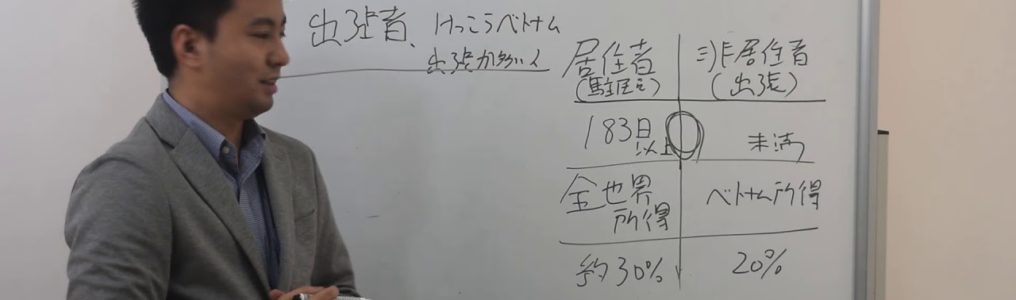 出張者、けっこうベトナム
出張が多い人
居住者 非居住者
(駐在) (出張)
183日以上 未満
全世界所得 ベトナム所得
約30% 20%